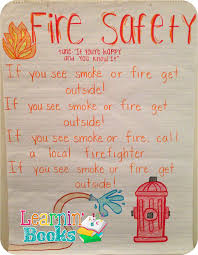 Fire Safety
tune: "If You're Happy
and You Know It"
If you see smoke or fire get
outside!
If you see smoke or fire get
outside!
If you see smoke or fire, call
a local firefighter
If you see smoke or fire get
outside!
Learnin'
Books